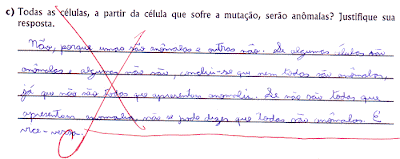 c) Todas as células, a partir da célula que sofre a mutação, serão anômalas? Justifique sua
resposta.
Não, porque umas são anômalas e outras não. Se algumas células são
anômalas, e algumas não são, conclui-se que nem todas são anômalas,
já que não são todas que apresentam anomalia. Se não são todas que
apresentam anomalia não se pode dizer que todas são anômalas. E
vice-versa.